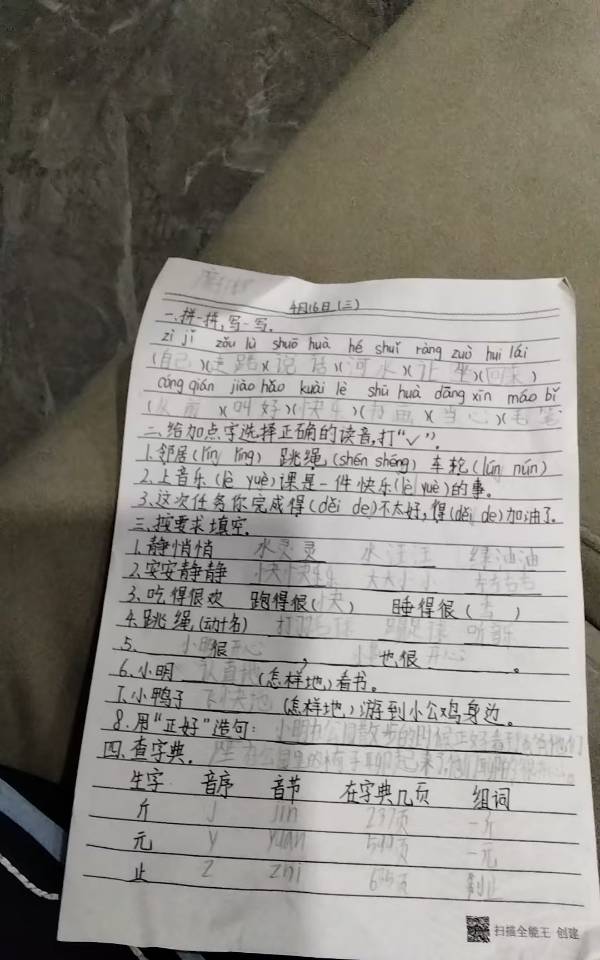 4月16日(三)
一、拼一拼,写一写。
zì jǐ zǒu lù shuō huà hé shuǐ ràng zuò huí lái
(自己)(走路)(说话)(河水)(让坐)(回来)
cóng qián jiào hǎo kuài lè shū huà dāng xīn máo bǐ
(从前)(叫好)(快乐)(书画)(当心)(毛笔)
二、给加点字选择正确的读音,打“✓”。
1.邻居(lín líng) 跳绳(shén shéng) 车轮(lún nún)
2.上音乐(lè yuè)课是一件快乐(lè yuè)的事。
3.这次任务你完成得(děi de)不太好,得(děi de)加油了。
三、按要求填空。
1.静悄悄 水灵灵 水汪汪 绿油油
2.安安静静 快快乐乐 大大小小
3.吃得很欢 跑得很(快) 睡得很( )
4.跳绳(动+名) 打羽毛球 踢足球 听音乐
5. 小明很开心, 也很开心。
6.小明 认真地 (怎样地)看书。
7.小鸭子 飞快地 (怎样地)游到小公鸡身边。
8.用“正好”造句: 小明在公园散步的时候正好看到
四、查字典。
生字 音序 音节 在字典几页 组词
斤 J jīn 237页 一斤
元 Y yuán 一元
止 Z zhǐ 制止
扫描全能王 创建